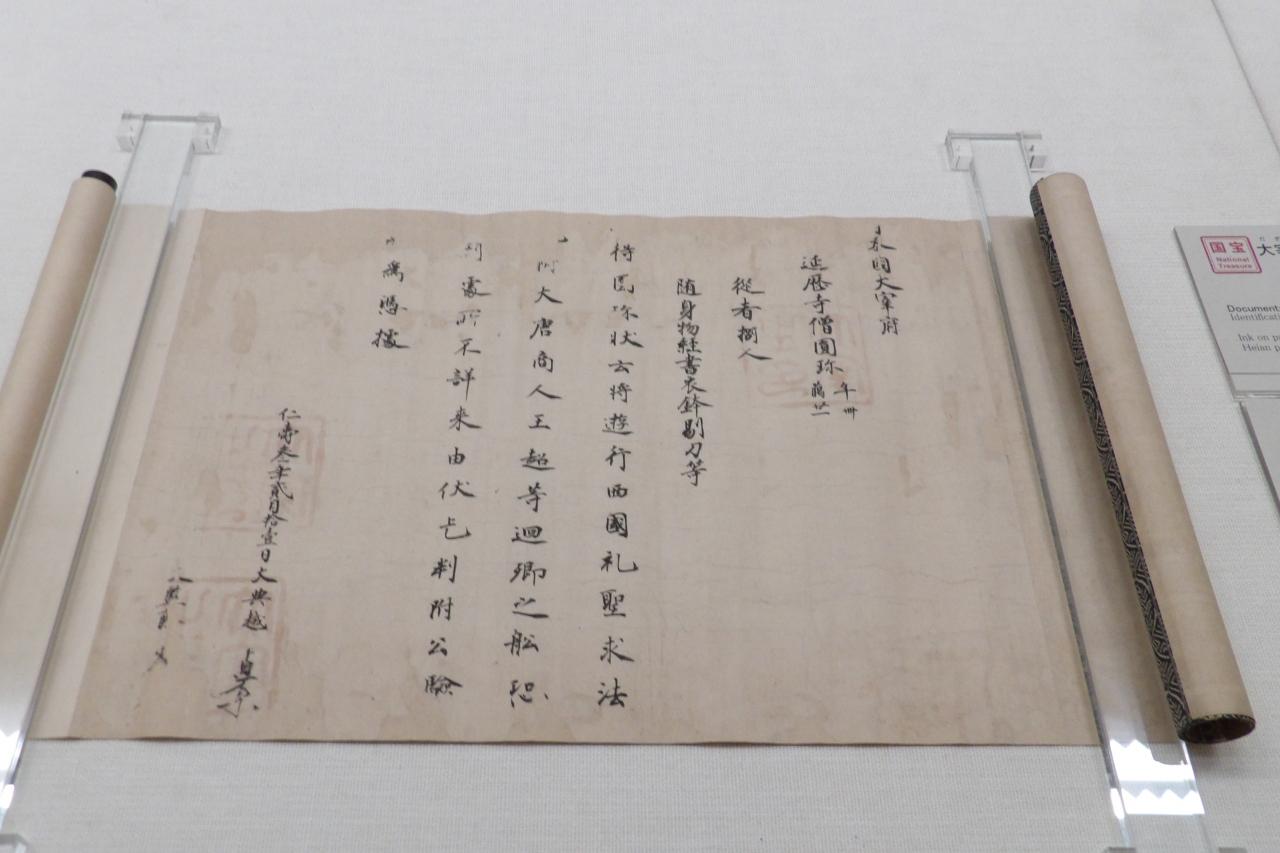 日本國大宰府
延曆寺僧圓珍 年卌 﨟廿一
從者捌人
随身物経書衣鉢剔刀等
得圓珍状云将遊行西國礼聖求法
附大唐商人王超等迴鄉之舩恐
到處所不詳来由伏乞判附公驗
以為憑據
仁壽叁年貳月拾壹日大典越 貞宗
大典
国宝
National
Treasure
大宰
Document
Identificati
Ink on p
Heian p